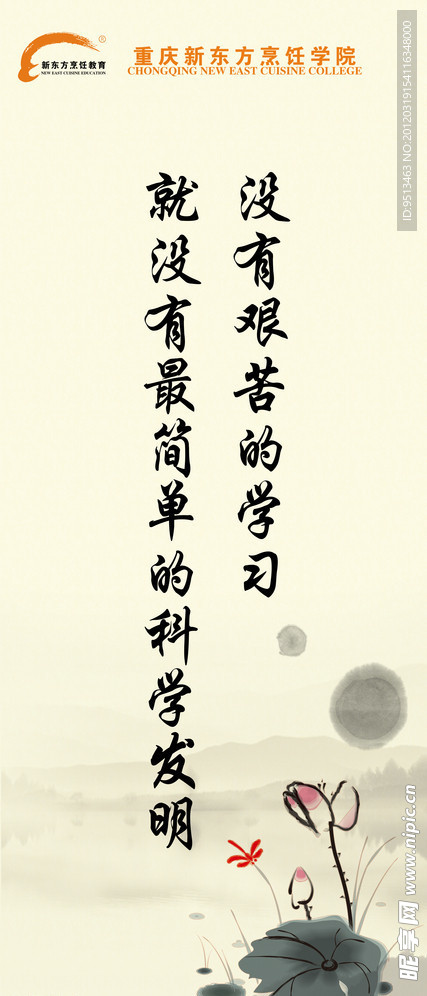 新东方烹饪教育®
NEW EAST CUISINE EDUCATION
重庆新东方烹饪学院
CHONGQING NEW EAST CUISINE COLLEGE
没有艰苦的学习
就没有最简单的科学发明
ID:9513463 NO:20120319154116348000
昵享网 www.nipic.cn